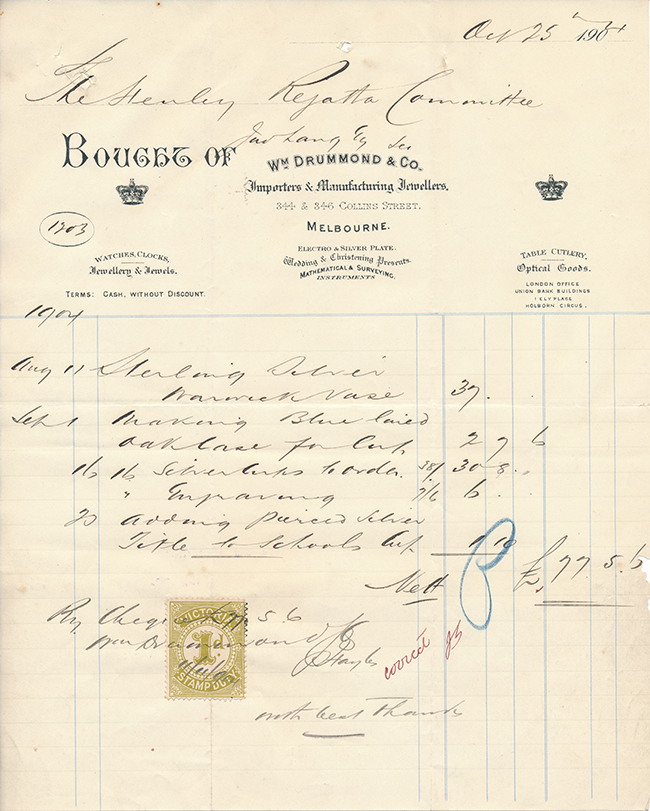 Oct 25th 1904
The Henley Regatta Committee
Jas Lang Sec
BOUGHT OF WM DRUMMOND & CO.
Importers & Manufacturing Jewellers.
344 & 346 COLLINS STREET.
MELBOURNE.
1703
WATCHES, CLOCKS,
Jewellery & Jewels.
TERMS: CASH, WITHOUT DISCOUNT.
ELECTRO & SILVER PLATE.
Wedding & Christening Presents.
MATHEMATICAL & SURVEYING
INSTRUMENTS
TABLE CUTLERY,
Optical Goods.
LONDON OFFICE
UNION BANK BUILDINGS
1 ELY PLACE
HOLBORN CIRCUS.
1904
Aug 11 Sterling Silver
Warwick Vase 37 . .
Sept 1 Making Blue lined
Oak Case for Cup 2 7 6
16 16 Silver Cups to order 38/ 30 8 .
" Engraving 7/6 6 . .
Adding Pierced Silver
Title to Schools Cup 1 10
Nett £77 5. 6
By Cheque £77 5 6
Wm Drummond & Co
VICTORIA
1d
STAMP DUTY
correct
with best thanks